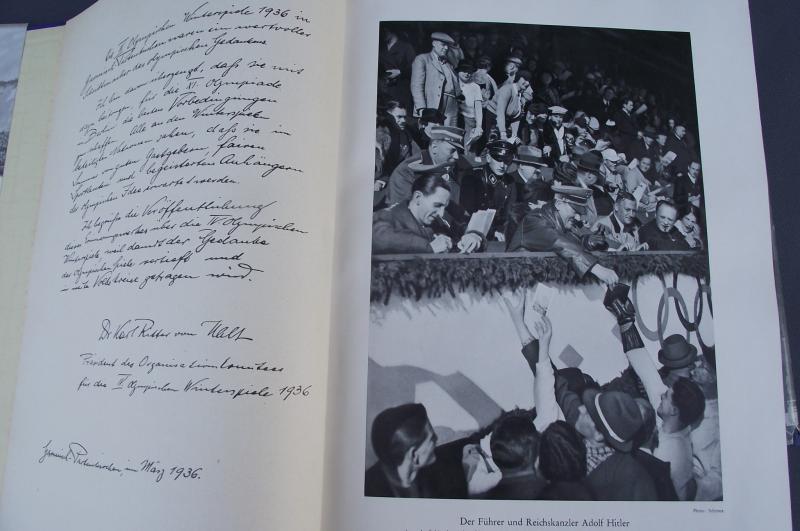 Die IV. Olympischen Winterspiele 1936 in
Garmisch-Partenkirchen waren ein wertvoller
des olympischen Gedankens
Ich bin davon überzeugt, daß sie mit
dazu beitragen, für die XI. Olympiade
in Berlin die besten Vorbedingungen
zu schaffen. Alle an den Winterspielen
beteiligten Nationen sahen, daß sie in
von guten Gastgebern, fairen
Sportsleuten und begeisterten Anhängern
der olympischen Idee erwartet werden.
Ich begrüße die Veröffentlichung
dieses Erinnerungswerkes über die IV. Olympischen
Winterspiele, weil damit der Gedanke
der Olympischen Spiele vertieft und
in weite Volkskreise getragen wird.
Dr Karl Ritter von Halt
Präsident des Organisationskomitees
für die IV. Olympischen Winterspiele 1936
Garmisch-Partenkirchen, im März 1936.
Der Führer und Reichskanzler Adolf Hitler